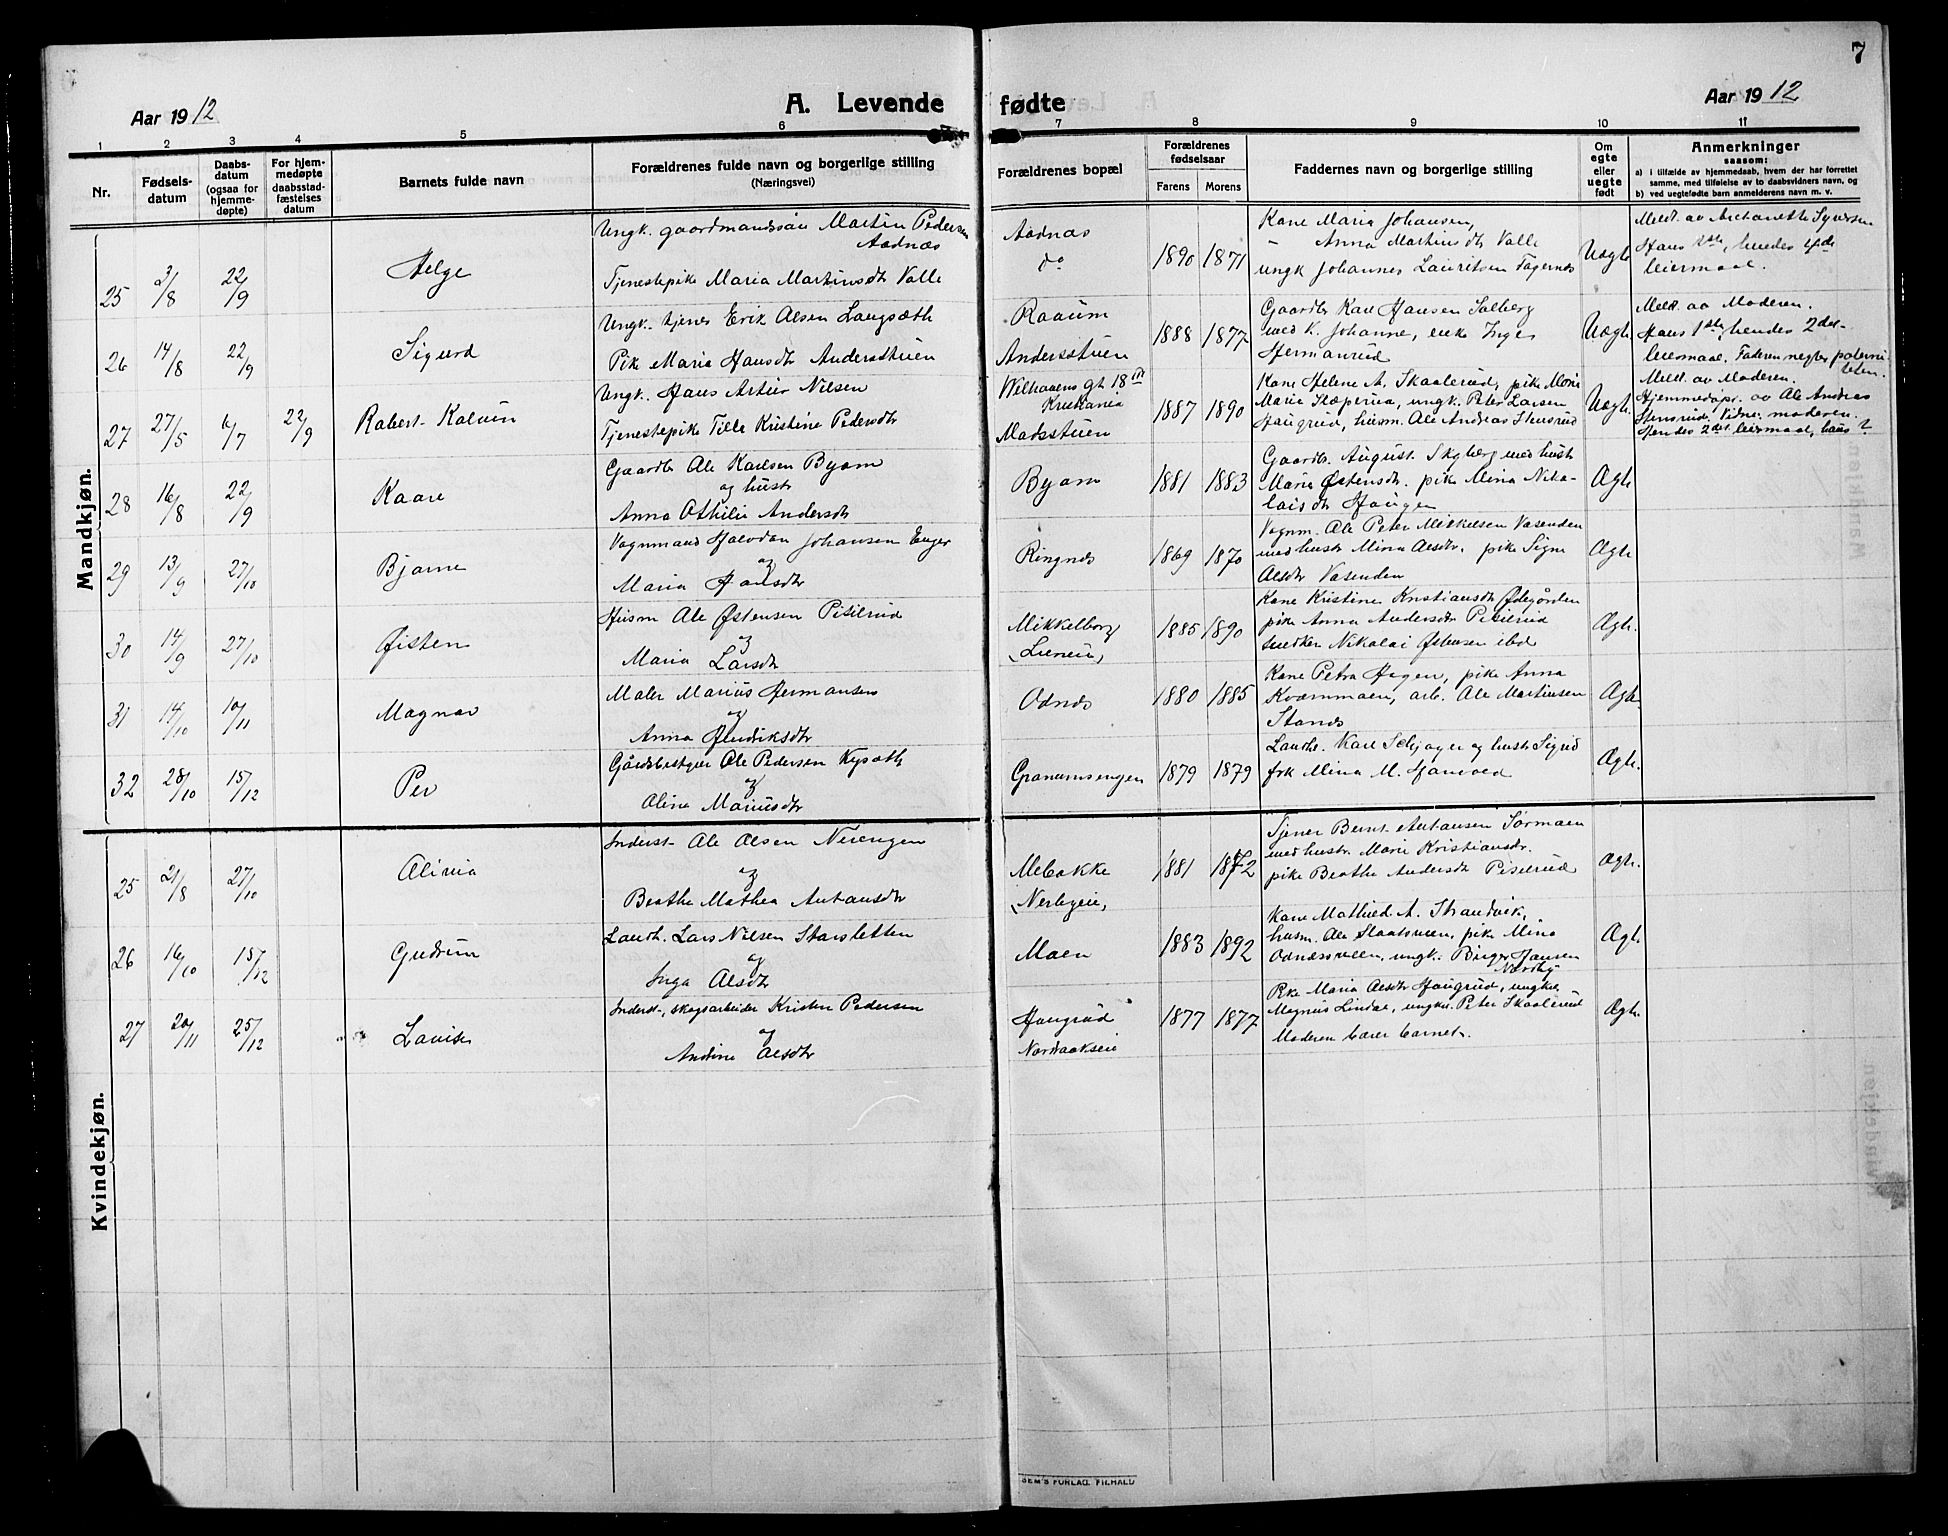 7
Aar 1912
A. Levende fødte
Aar 1912
1 2 3 4 5 6 7 8 9 10 11
Nr.
Fødsels-
datum
Daabs-
datum
(ogsaa for
hjemme-
døpte)
For hjem-
medøpte
daabsstad-
fæstelses
datum
Barnets fulde navn
Forældrenes fulde navn og borgerlige stilling
(Næringsvei)
Forældrenes bopæl
Forældrenes
fødselsaar
Farens Morens
Faddernes navn og borgerlige stilling
Om
egte
eller
uegte
født
Anmerkninger
saasom:
a) i tilfælde av hjemmedaab, hvem der har forrettet
samme, med tilføielse av to daabsvidners navn, og
b) ved uegtefødte barn anmelderens navn m. v.
Mandkjøn.
25 3/8 22/9 Helge
Ungk. gaardmandssøn Martin Pedersen
Aadnæs
Tjenestepike Maria Martinsdtr Valle
Aadnæs
do
1890 1871
Kone Maria Johansen,
" Anna Martinsdtr Valle
ungk Johannes Lauritsen Fagernæs
Uegte
Meldt av Antonette Syversen
Hans 1ste, hendes 4de
leiermaal.
26 14/8 22/9 Sigurd
Ungk. tjener Erik Olsen Langsæth
Pike Maria Hansdtr Anderstuen
Raaum
Anderstuen
1888 1877
Gaardbr Karl Hansen Solberg
med k. Johanne, enke Inger
Hermanrud
Uegte
Meldt av Moderen.
Hans 1ste, hendes 2det
leiermaal. Faderen negter paterni-
teten.
27 27/5 6/7 22/9 Robert Kalvin
Ungk. Hans Artur Nilsen
Tjenestepike Tilla Kristine Pedersdtr
Wilhelms gt 18 III
Kristiania
Madsstuen
1887 1890
Kone Helene A. Skaalerud, pike Marie
Maria ungk. Peter Larsen
Haugrud, husm. Ole Andreas Stensrud
Uegte
Meldt. av Moderen.
Hjemmedøpt av Ole Andreas
Stensrud. Vidne: moderen.
Hendes 2det leiermaal, hans ?
28 16/8 22/9 Kaare
Gaardbr Ole Karlsen Byom
og hustr
Anna Othilie Andersdtr
Byom
1881 1883
Gaardbr. August Skyberg med hustr
Marie Østensdtr. pike Mina Niko-
laisdtr Haugen
Ægte
29 13/9 27/10 Bjarne
Vognmand Halvdan Johansen Enger
og
Maria Hansdtr
Ringnæs
1869 1870
Vognm. Ole Peter Mikkelsen Vasenden
med hustr Mina Olsdtr. pike Signe
Olsdtr Vasenden
Ægte
30 14/9 27/10 Øisten
Husm Ole Østensen Pisilrud
og
Maria Larsdtr
Mikkelborg
(Lieneie)
1885 1890
Kone Kristine Kristiansdtr Ødegården
pike Anna Andersdtr Pisilrud
snedker Nikolai Østensen ibd
Ægte.
31 14/10 10/11 Magnar
Maler Marius Hermansen
og
Anna Hendriksdtr
Odnæs
1880 1885
Kone Petra Hagen, pike Anna
Kvæmmoen, arb. Ole Martinsen
Ægte.
32 28/10 15/12 Per
Gårdsbestyrer Ole Pedersen
og
Oline Mariusdtr
Granumsengen
1879 1879
Landh. Karl Schjager og hustr Sigrid
frk Mina M.
Ægte.
Kvindekjøn.
25 21/8 27/10 Olivia
Inderst Ole Olsen Nerengen
og
Beathe Mathea Antonsdtr
Melbakke
(Nerbyeie)
1881 1872
Tjener Bernt Antonsen Sørmoen
med hustr. Marie Kristiansdtr.
pike Beathe Andersdtr Pisilrud
Ægte.
26 16/10 15/12 Gudrun
Landh. Lars Nilsen Storsletten
og
Inga Olsdtr
Moen
1883 1892
Kone Mathild A. Strandvik,
husm. Ole pike Mina
Odnæsvollen, ungk. Birger Hansen
Nordby
Ægte
27 20/11 25/12 Lovise
Inderst, skogsarbeider Kristen Pedersen
og
Andrine Olsdtr
Haugrud
Nordaakseie
1877 1877
Pike Maria Olsdtr Haugrud, ungkar
Magnus Lindal, ungkar Peter Skaalerud
Moderen bærer barnet.
Ægte.
SEM'S FORLAG, FR.HALD